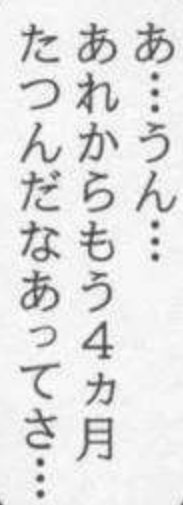 あ…うん…
あれからもう４ヵ月
たつんだなあってさ…